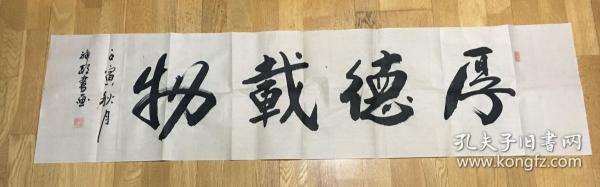 厚德載物
庚寅秋月
書画
孔夫子旧书网
www.kongfz.com